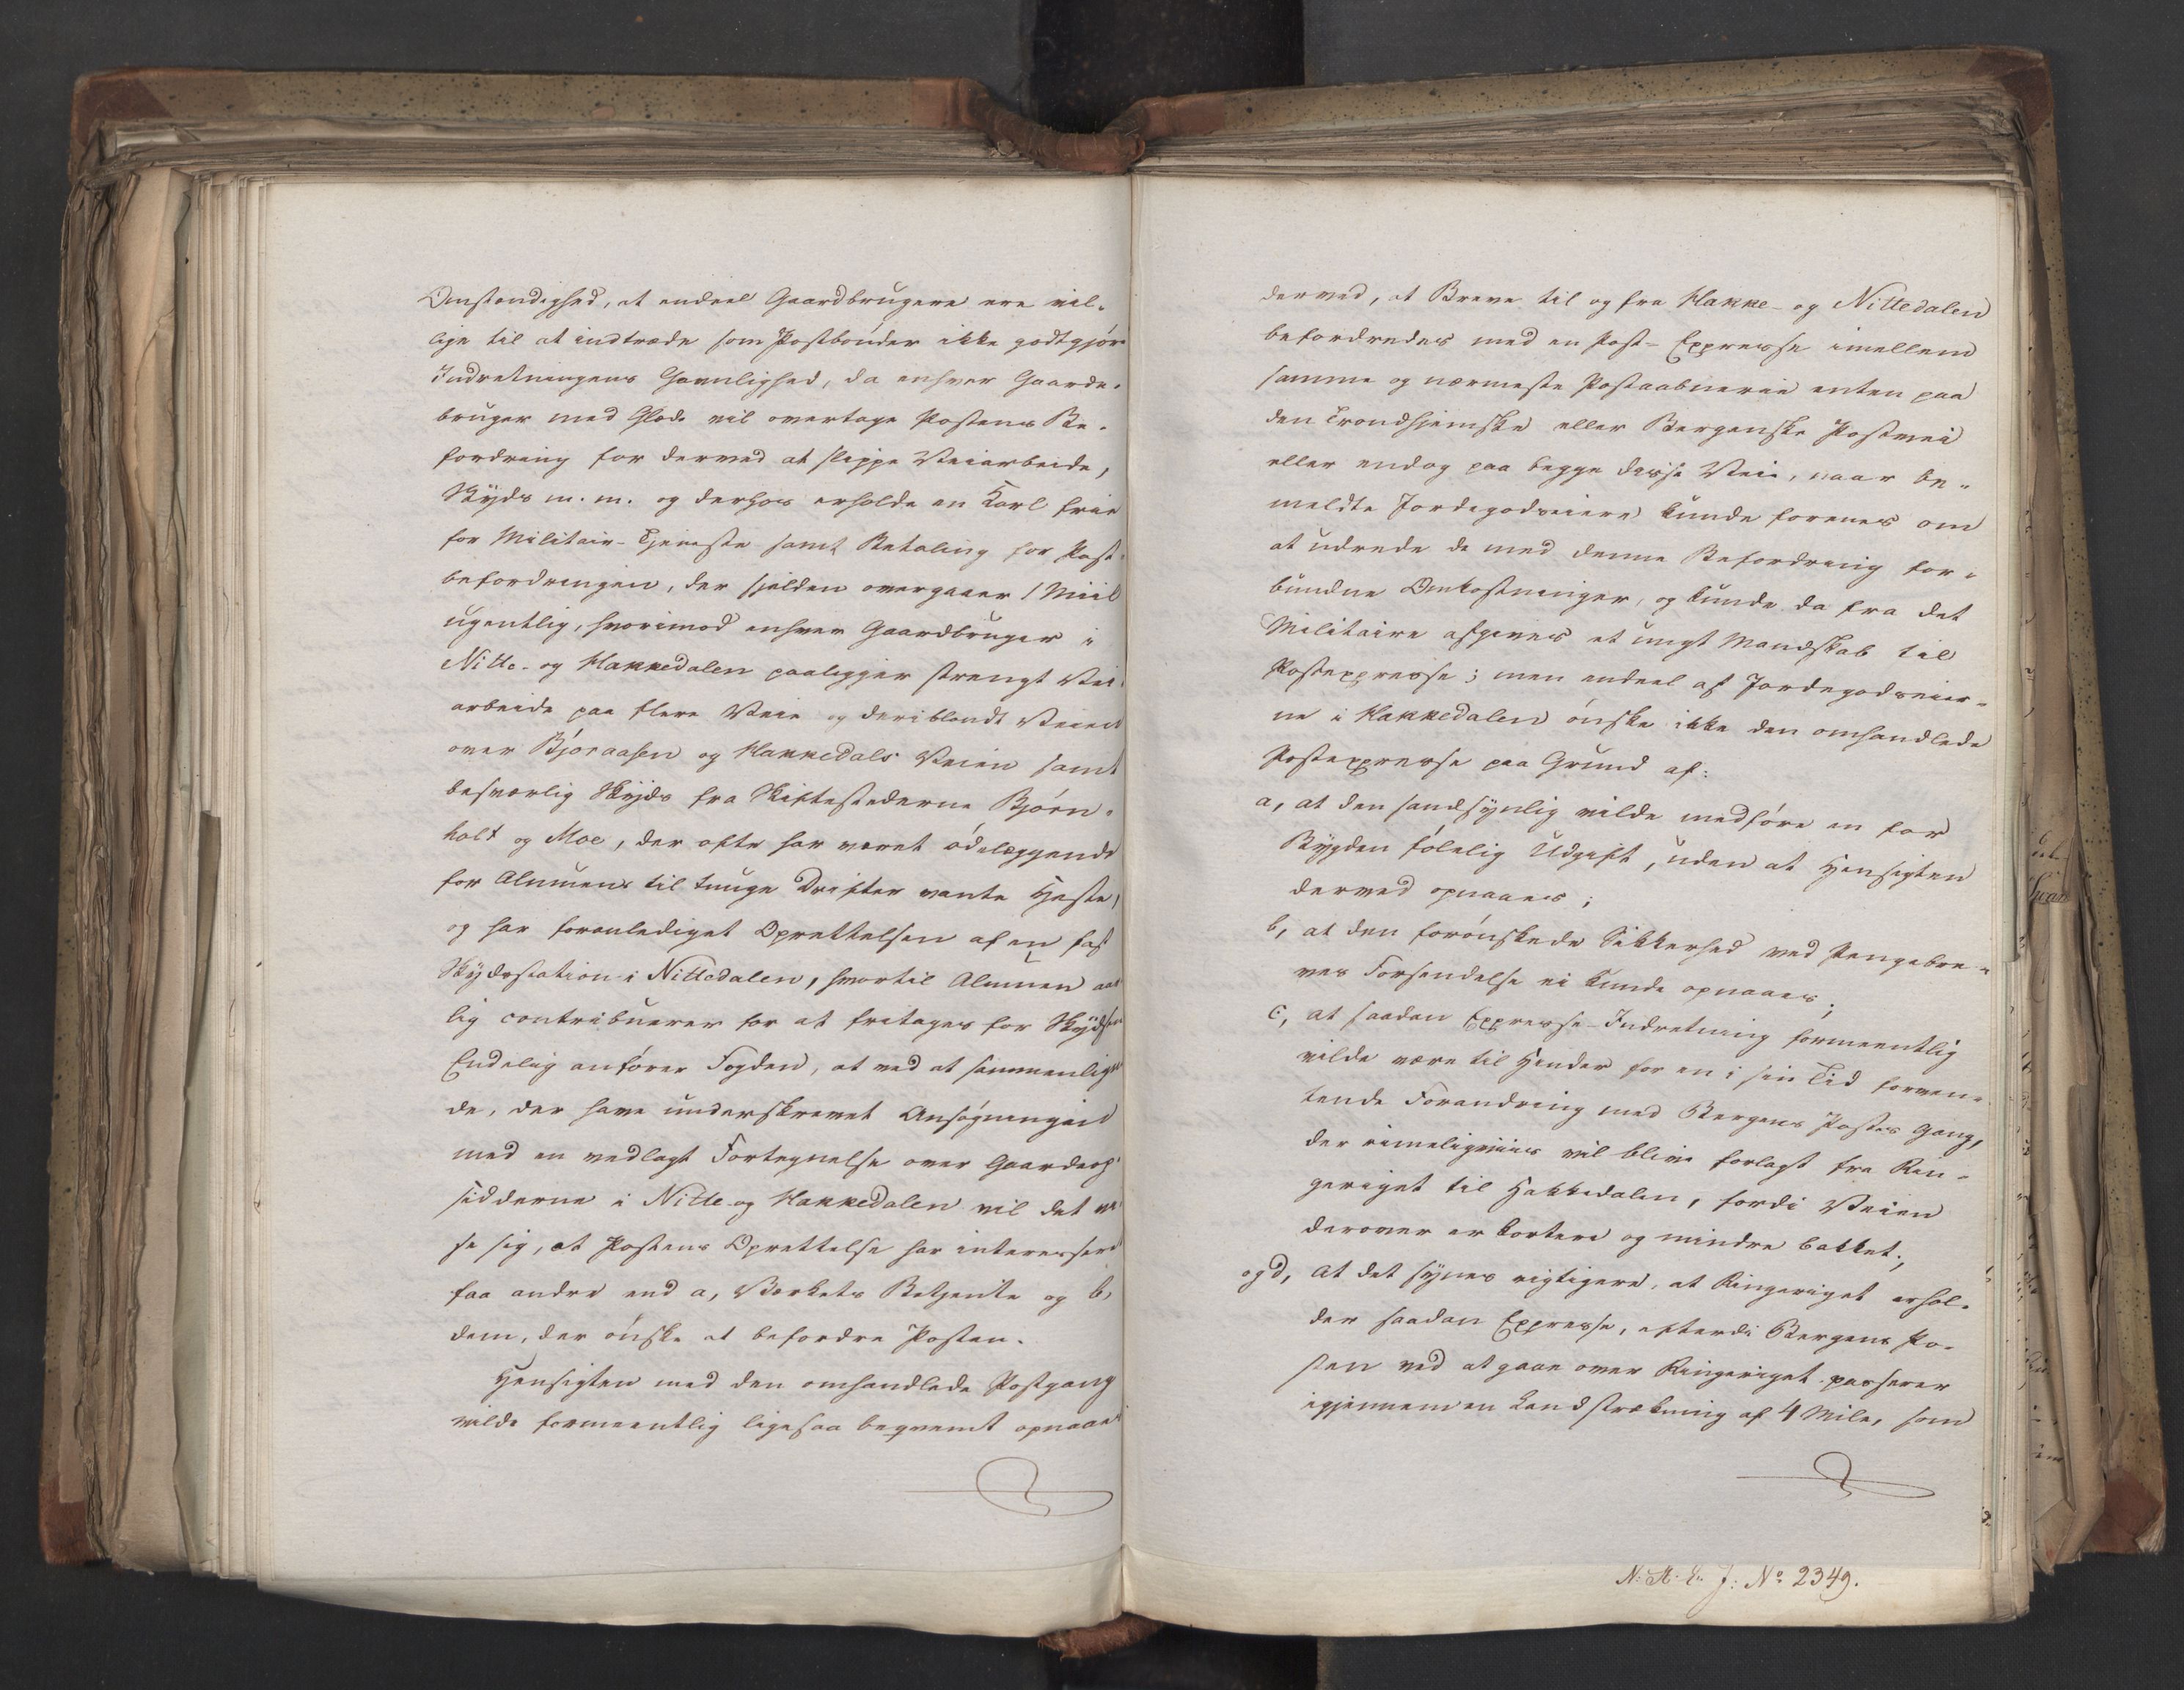 Omstændighed, at endeel Gaardbrugere ere vil-
lige til at indtræde som Postbønder ikke godtgjør
Indretningens Gavnlighed, da enhver Gaard-
bruger med Glæde vil overtage Postens Be-
fordring for derved at slippe Veiarbeide,
Skyds m. m. og derhos erholde en Karl frie
for Militair-Tjeneste samt Betaling for Post-
befordringen, der sjelden overgaaer 1 Miil
ugentlig, hvorimod enhver Gaardbruger i
Nitte- og Hakkedalen paaligger strengt Vei-
arbeide paa flere Veie og deriblandt Veien
over Bjøraasen og Hakkedals Veien samt
besværlig Skyds fra Skiftestederne Bjørn-
holt og Moe, der ofte har været ødelæggende
for Almuens til tunge Drifter vante Heste,
og har foranlediget Oprettelsen af en fast
Skydsstation i Nittedalen, hvortil Almuen aar-
lig contribuerer for at fritages for Skydsen
Endelig anfører Fogden, at ved at sammenligne
de, der have underskrevet Ansøgningen
med en vedlagt Fortegnelse over Gaardop-
sidderne i Nitte- og Hakkedalen vil det vi-
se sig, at Postens Oprettelse har interesseret
faa andre end a, Værkets Betjente og b,
dem, der ønske at befordre Posten.
Hensigten med den omhandlede Postgang
vilde formeentlig ligesaa beqvemt opnaaes
derved, at Breve til og fra Hakke- og Nittedalen
befordredes med en Post-Expresse imellem
samme og nærmeste Postaabnerie enten paa
den Trondhjemske eller Bergenske Postvei
eller endog paa begge disse Veie, naar be-
meldte Jordegodseiere kunde forenes om
at udrede de med denne Befordring for-
bundne Omkostninger, og kunde da fra det
Militaire afgives et ungt Mandskab til
Postexpresse; men endeel af Jordegodseier-
ne i Hakkedalen ønske ikke den omhandlede
Postexpresse paa Grund af:
a, at den sandsynlig vilde medføre en for
Bygden følelig Udgift, uden at Hensigten
derved opnaaes;
b, at den forønskede Sikkerhed ved Pengebre-
ves Forsendelse ei kunde opnaaes;
c, at saadan Expresse-Indretning formeentlig
vilde være til Hinder for en i sin Tid forven-
tende Forandring med Bergens Postes Gang,
der rimeligviis vil blive forlagt fra Rin-
geriget til Hakkedalen, fordi Veien
derover er kortere og mindre bakket;
og d, at det synes rigtigere, at Ringeriget erhol-
der saadan Expresse, efterdi Bergens Po-
sten ved at gaae over Ringeriget passerer
igjennem en Landstrækning af 4 Mile, som
N: R: L: J: No 2349.